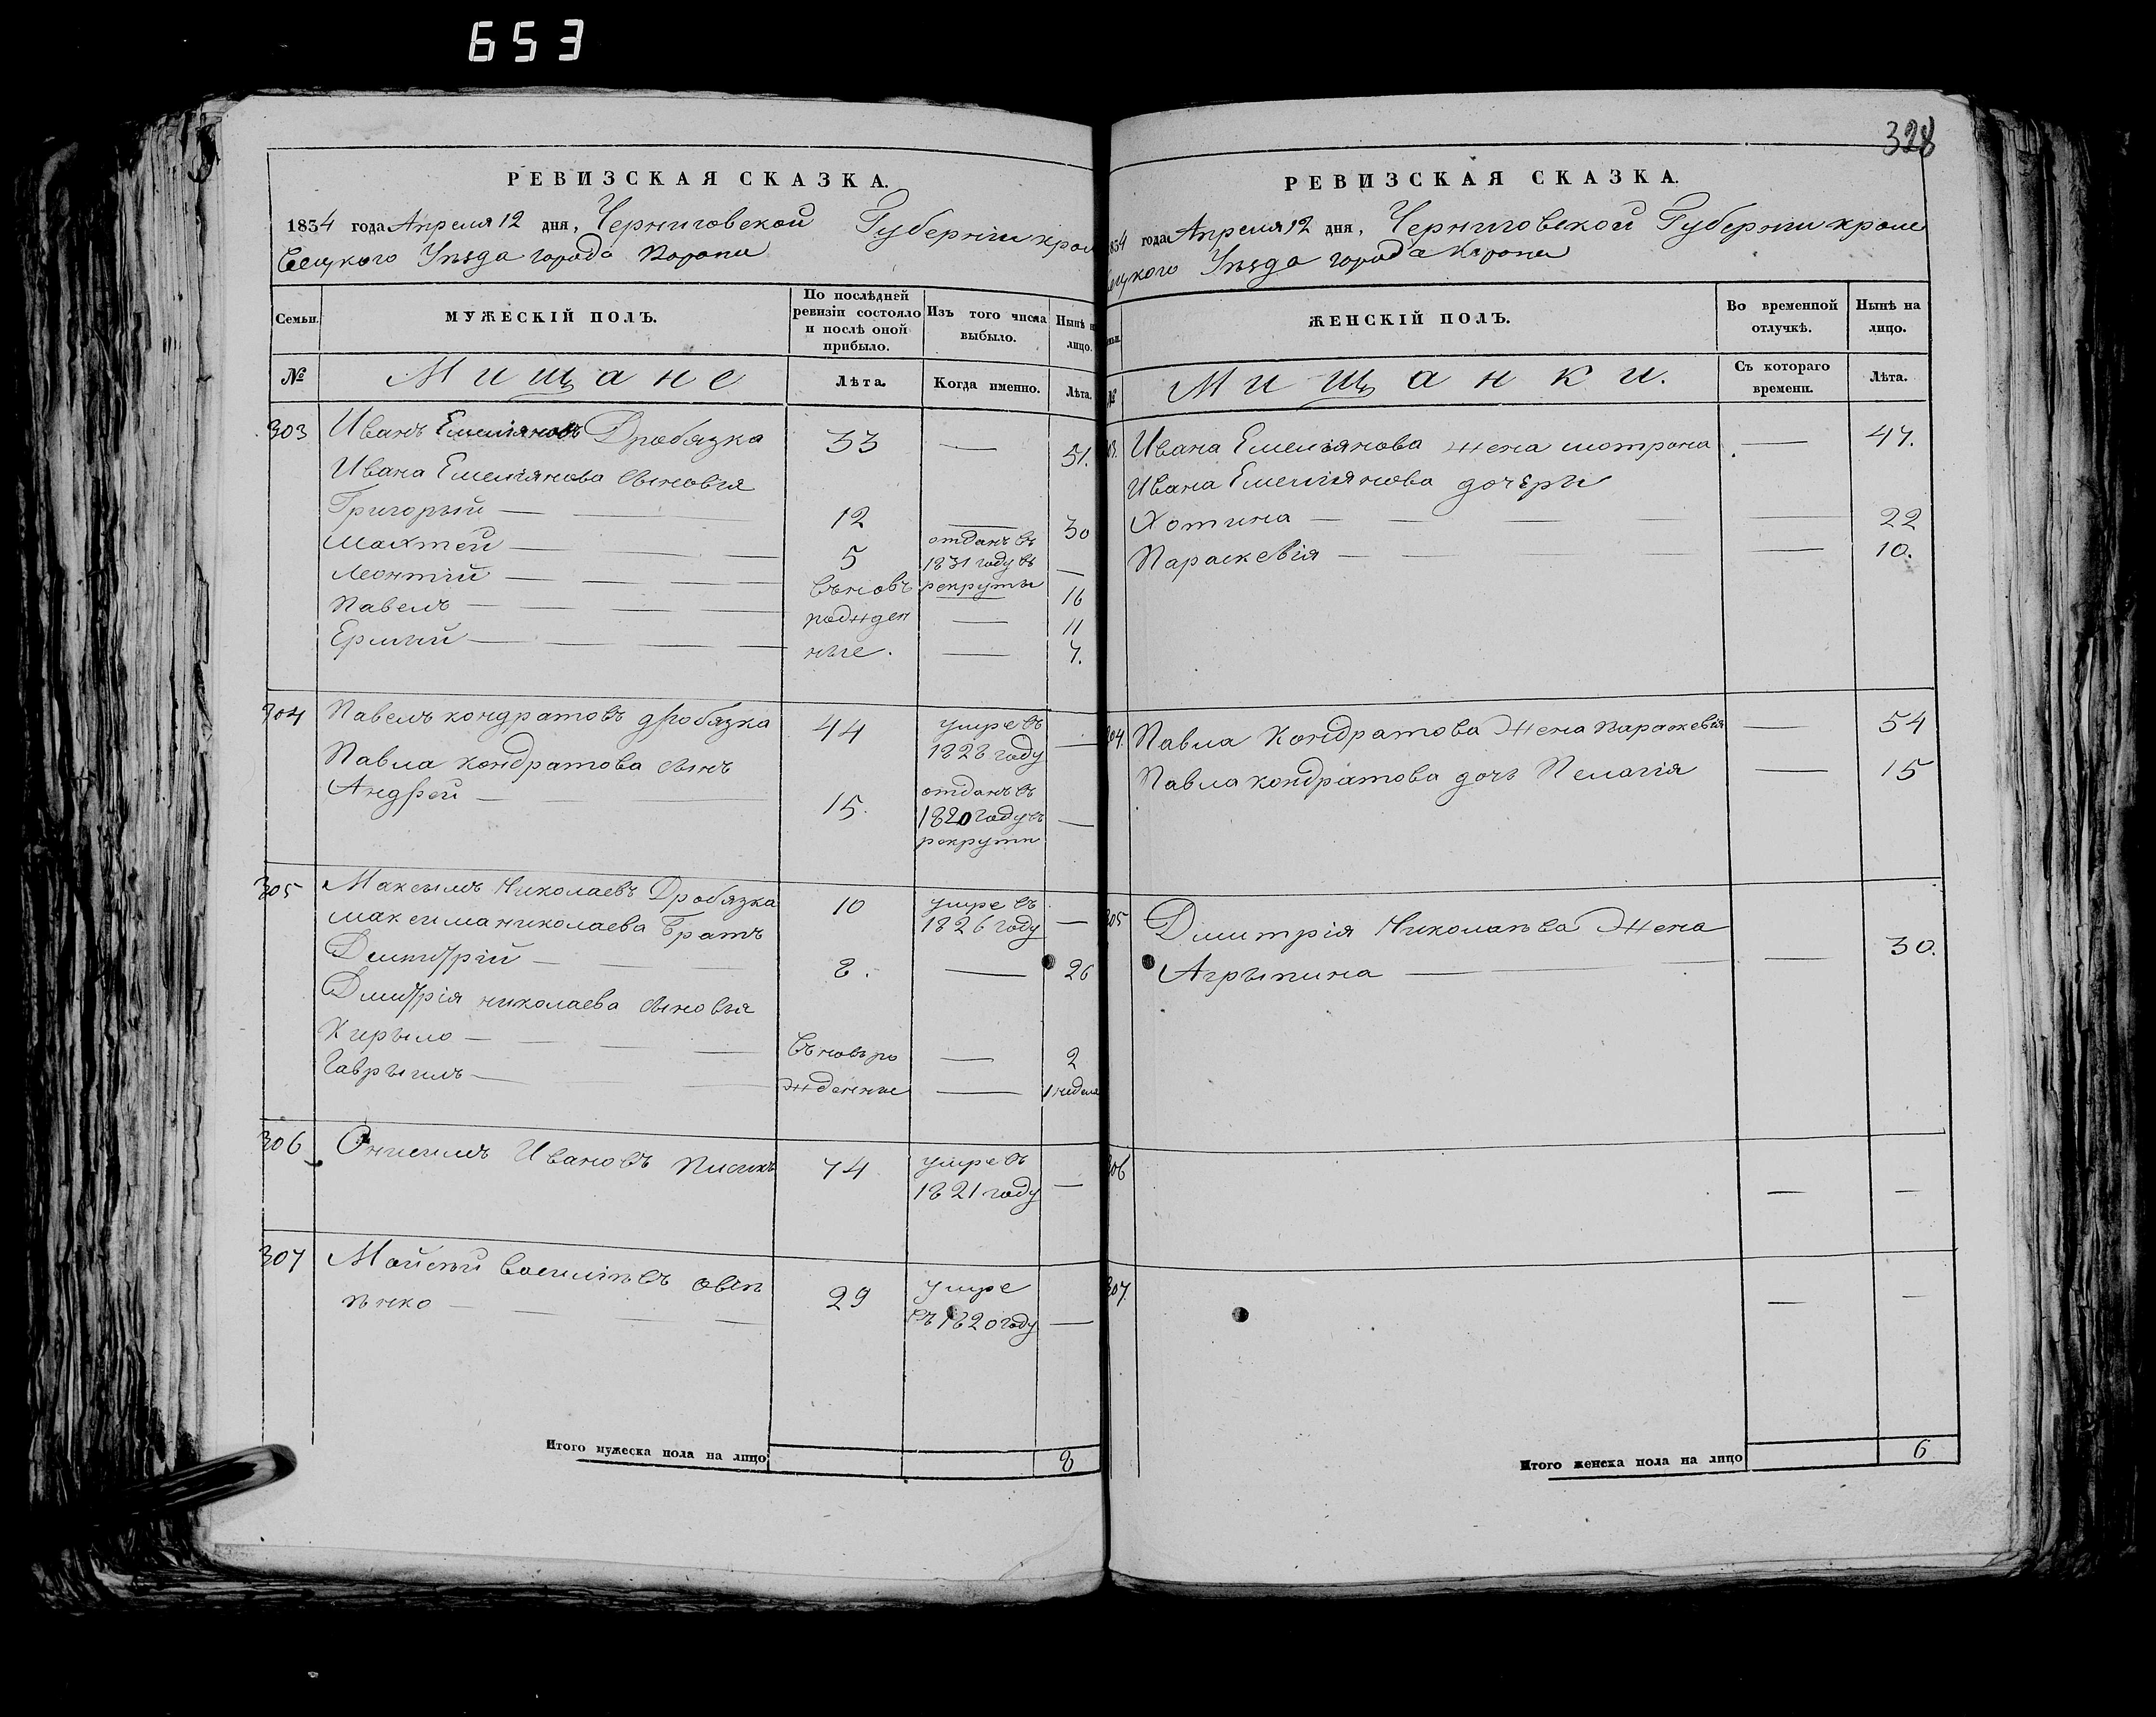 653
РЕВИЗСКАЯ СКАЗКА.
1834 года Апреля 12 дня, Черниговской Губерніи крол
Вецкого Уѣзда города Коропа
Семьи.
МУЖЕСКІЙ ПОЛЪ.
По послѣдней ревизіи состояло и послѣ оной прибыло.
Изъ того числа выбыло.
Нынѣ н лицо.
№
Мищане
Лѣта.
Когда именно.
Лѣта.
303 Иванъ Емеліяновъ Дробязка 33 — 51.
Ивана Емеліянова сыновья
Григорый — 12 — 30
Махтей — 5 отданъ въ 1831 году въ рекруты —
Леонтій — вновь — 16
Павелъ — рожден — 11
Ермый — ные. — 7.
304 Павелъ кондратовъ дробязка 44 умре въ 1828 году —
Павла кондратова сынъ
Андрей — 15. отданъ въ 1820 году въ рекруты —
305 Максымъ Николаевъ Дробязка 10 умре въ 1826 году —
максима николаева Братъ
Димитрій — 8. — 26
Дмитрія николаева сыновья
Кирыло — вновь ро — 2
Гаврыилъ — жденные — 1 неделя
306 Онисимъ Ивановъ 74 умре въ 1821 году —
307 Мойсей Василіевъ овсѣ
ѣнко — 29 умре въ 1820 году —
Итого мужеска пола на лицо 8
328
РЕВИЗСКАЯ СКАЗКА.
834 года Апреля 12 дня, Черниговской Губерніи кроле
вецкого Уѣзда города Коропа
ЖЕНСКІЙ ПОЛЪ.
Во временной отлучкѣ.
Нынѣ на лицо.
№
Мищанки.
Съ котораго времени.
Лѣта.
03. Ивана Емеліянова жена мотрона — 47.
Ивана Емеліянова дочери
Хотина — — 22
Параскевія — — 10.
304. Павла Кондратова Жена параскевія — 54
Павла кондратова дочь Пелагія — 15
305 Дмитрія Николаева Жена
Агрыпина — — 30.
306 — —
307. — —
Итого женска пола на лицо 6